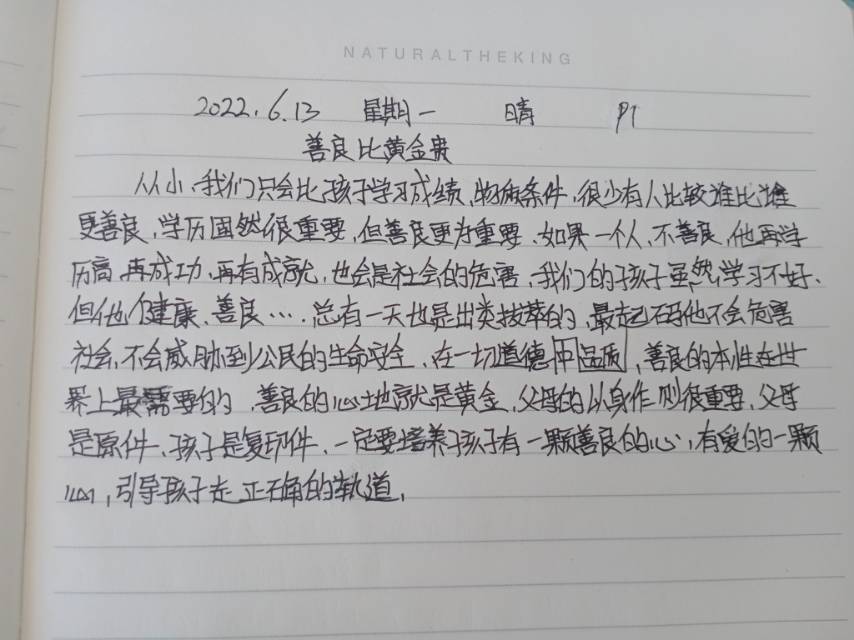 NATURALTHEKING
2022.6.13 星期一 晴 P1
善良比黄金贵
从小、我们只会比孩子学习成绩、物质条件、很少有人比较谁比谁
更善良,学历固然很重要,但善良更为重要、如果一个人、不善良,他再学
历高、再成功、再有成就,也会是社会的危害、我们的孩子虽然,学习不好、
但他健康、善良…. 总有一天也是出类拔萃的,最起码他不会危害
社会,不会威胁到公民的生命安全、在一切道德中品质,善良的本性在世
界上最需要的、善良的心地就是黄金,父母的以身作则很重要,父母
是原件、孩子是复印件、一定要培养孩子有一颗善良的心,有爱的一颗
心,引导孩子走正确的轨道,